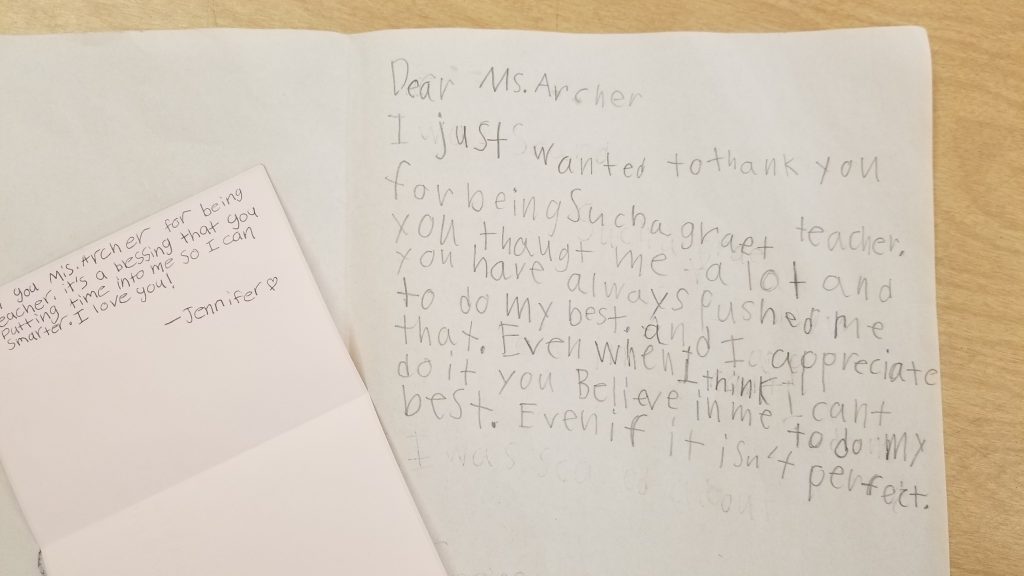 you Ms. Archer for being
teacher. it's a blessing that you
putting time into me so I can
smarter. I love you!
—Jennifer ♡
Dear Ms. Archer
I just wanted to thank you
for being Such a graet teacher.
you thaugt me a lot and
you have always pushed me
to do my best. and I appreciate
that. Even when I think I cant
do it you Believe in me to do my
best. Even if it isn't perfect.
I was